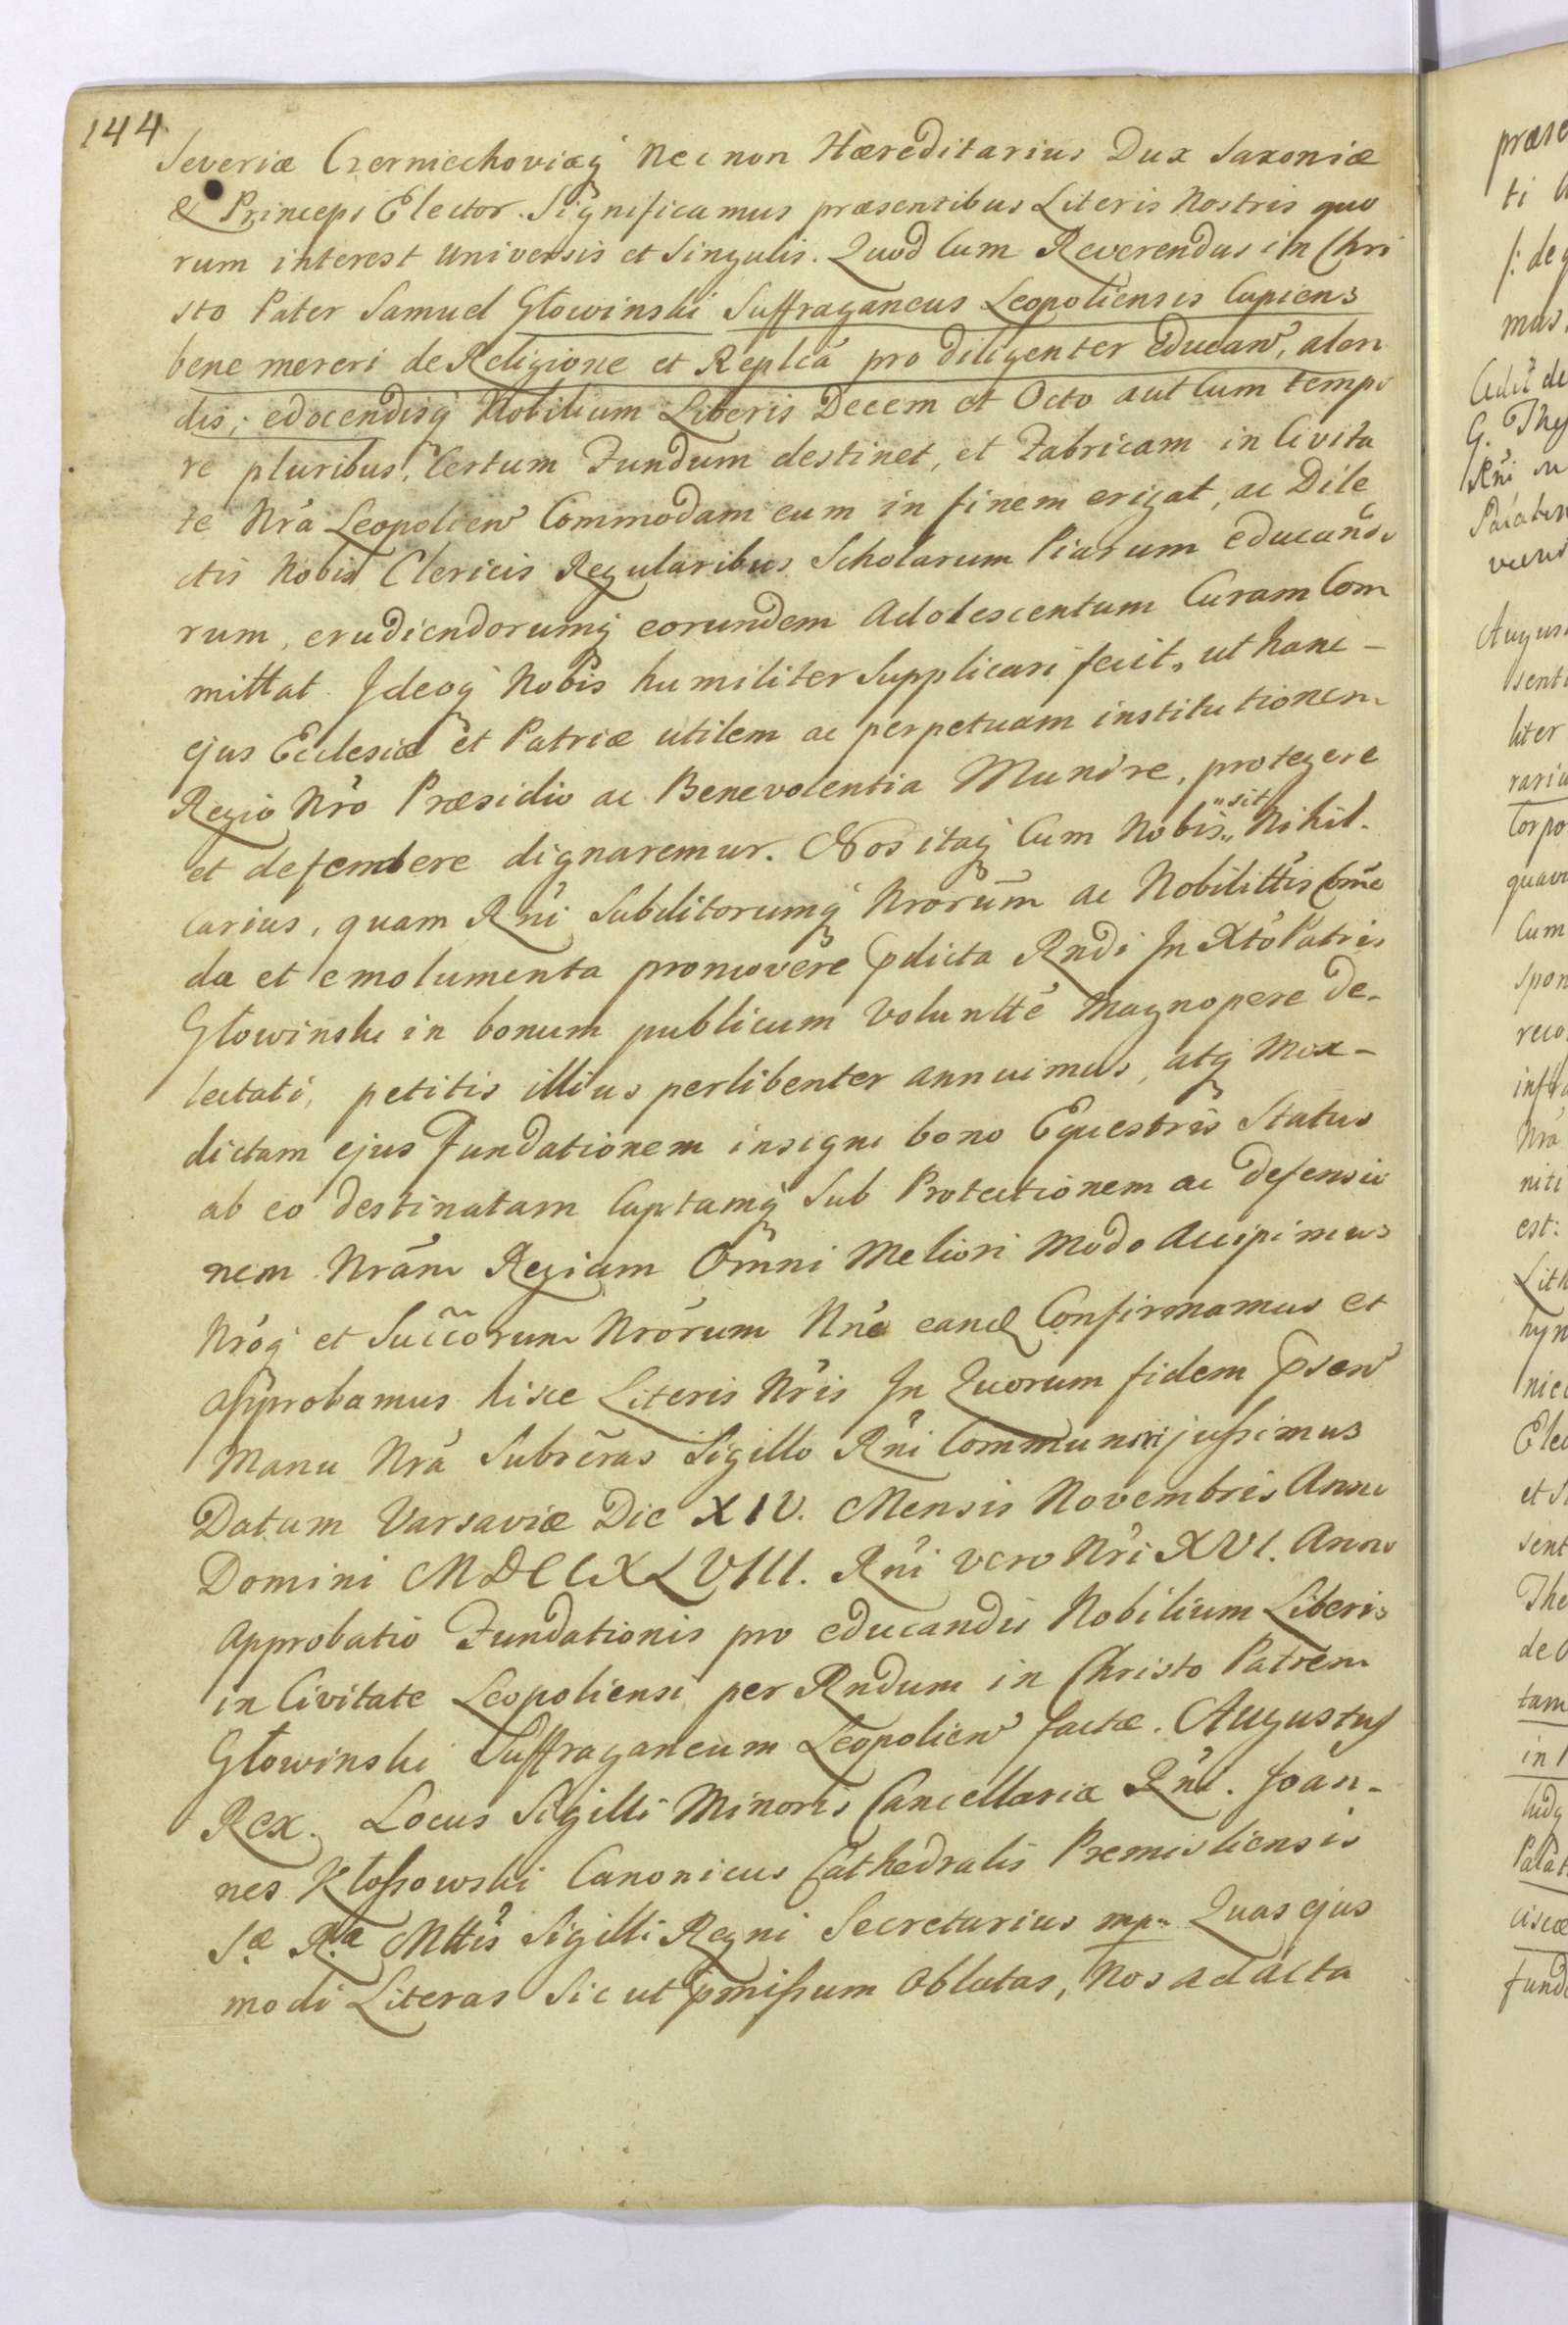 144.
Severiæ Czerniechoviæq́ Necnon Hæreditarius Dux Saxoniæ
& Princeps Elector. Significamus præsentibus Literis Nostris quo
rum interest universis et Singulis. Quod Cum Reverendus in Chri
sto Pater Samuel Głowinski Suffraganeus Leopoliensis Cupiens
bene mereri de Religione et Replicâ pro diligenter educan̄, alen
dis, edocendisq́ Nobilium Liberis Decem et Octo aut Cum tempo
re pluribus, Certum Fundum destinet, et Fabricam in Civita
te Nrâ Leopolien̄ Commodam eum in finem erigat, ac Dile
ctis Nobis Clericis Regularibus Scholarum Piarum educando
rum, erudiendorumq́ eorundem Adolescentum Curam Com
mittat. Ideoq́ Nobis humiliter Supplicari fecit, ut hanc -
ejus Ecclesiæ et Patriæ utilem ac perpetuam institutionem
Regio Nrō Præsidio ac Benevolentia Munire, protegere
et defendere dignaremur. Nos itaq́ Cum Nobis "sit" Nihil
carius, quam Rn̄i Subditorumq́ Nrorūm ac Nobilittīs Com̄o
da et emolumenta promovēre p̄dicta Rndi In Xtō Patris
Głowinski in bonum publicum Voluntte Magnopere de-
lectati, petitis illius perlibenter annuimus, atq́ mox -
dictam ejus Fundationem insigni bono Equestris Status
ab eo destinatam Captamq́ Sub Protectionem ac defensio
nem Nrām Regiam Om̄ni Meliori modo Accipimus
Nrōq́ et Succ̄orum Nrōrum Nn̄e eand Confirmamus et
Approbamus hisce Literis Nrīs In Quorum fidem p̄sen̄
Manu Nrâ Subsc̄ras Sigillo Rn̄i Communiri jussimus
Datum Varsaviæ Die XIV. Mensis Novembris Anno
Domini MDCCXLVIII. Rn̄i vero Nrī XVI. Anno
Approbatio Fundationis pro educandis Nobilium Liberis
in Civitate Leopoliensi per Rndum in Christo Patrem
Głowinski Suffraganeum Leopolien̄ factæ. Augustus
Rex. Locus Sigilli Minoris Cancellariæ Rn̄i. Joan̄-
nes Kłossowski Canonicus Cathedralis Premisliensis
S.æ R.æ Mttīs Sigilli Regni Secretarius mp. Quas ejus
modi Literas Sic ut p̄missum Oblatas, Nos ad acta
præse
ti
/: de
mus
de
G. Thy
Rn̄i
Augus
senti
liter
rariu
Corpo
quav
Cum
spon
reco
infra
Nrâ
niti
est:
Lith
hyn
nie
Elec
et S
sent
The
de
tam
in
Palat
fund